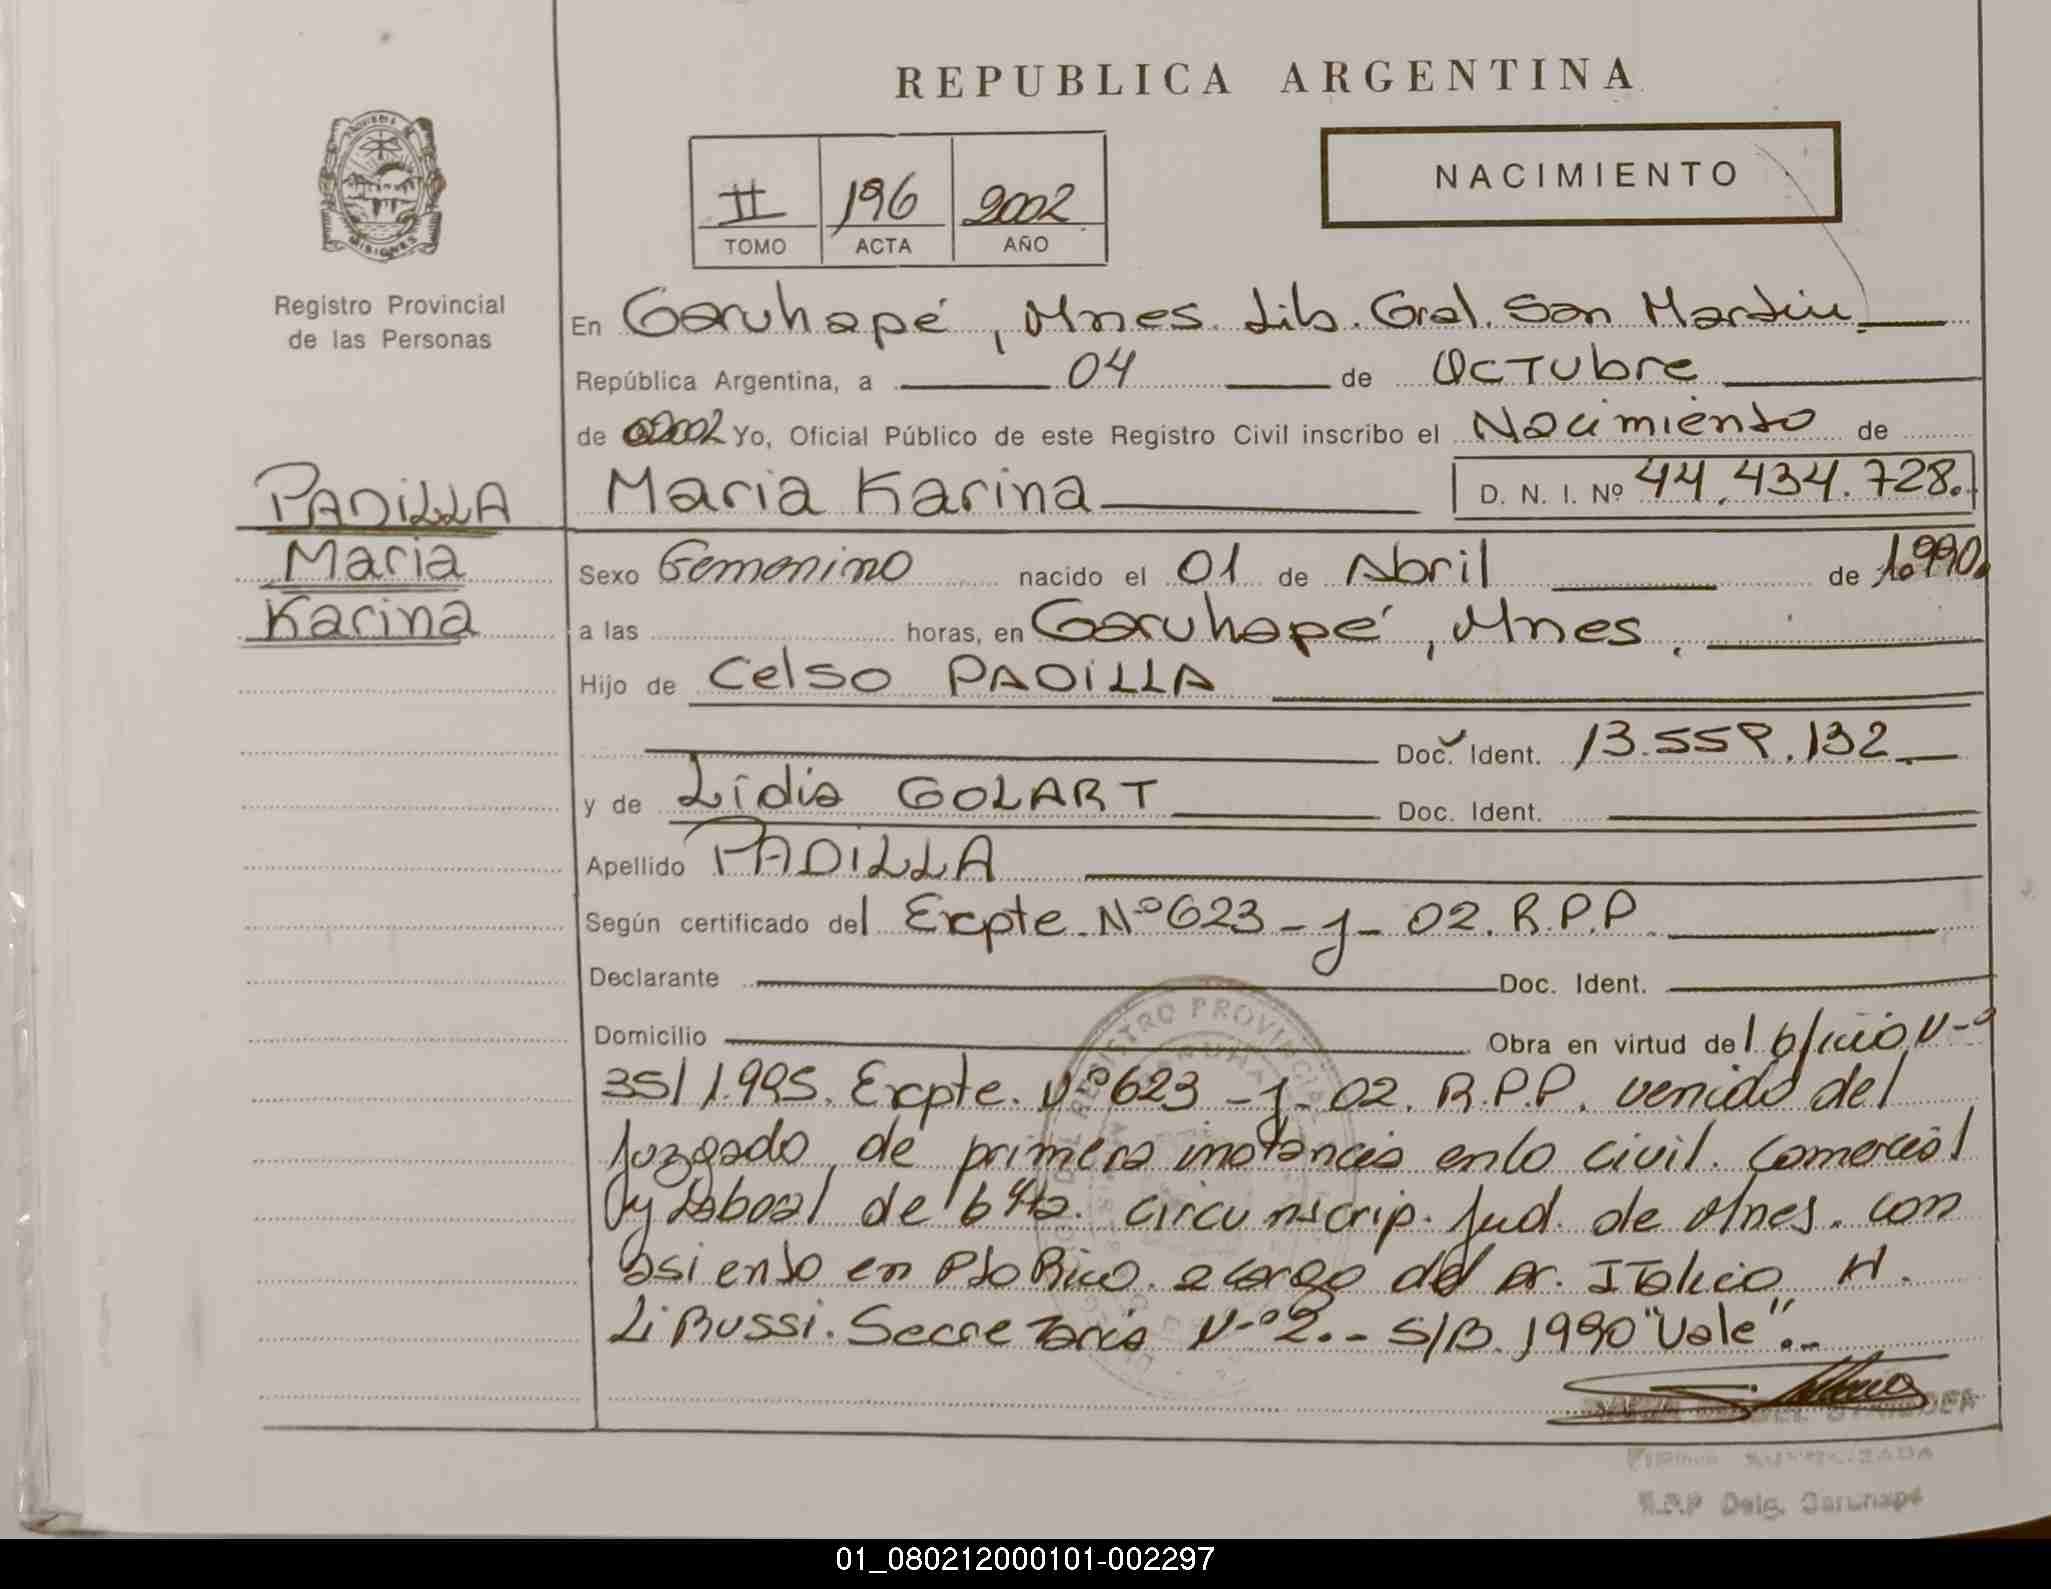 REPUBLICA ARGENTINA
NACIMIENTO
II 196 2002
TOMO ACTA AÑO
PROVINCIA DE
MISIONES
Registro Provincial
de las Personas
En Garuhapé, Mnes. Lib. Gral. San Martin
República Argentina, a 04 de Octubre
de 2002 Yo, Oficial Público de este Registro Civil inscribo el Nacimiento de
PADILLA
Maria
Karina
Maria Karina D. N. I. Nº 44.434.728.
Sexo Femenino nacido el 01 de Abril de 1.990.
a las horas, en Garuhapé, Mnes.
Hijo de Celso PADILLA
Doc. Ident. 13.559.132
y de Lidia GOLART Doc. Ident.
Apellido PADILLA
Según certificado del Expte. Nº 623-J-02. R.P.P.
Declarante Doc. Ident.
Domicilio Obra en virtud del Oficio Nº
35/1.995. Expte. Nº 623-J-02. R.P.P. venido del
Juzgado de primera instancia en lo civil. Comercial
y Laboral de 4ta. circunscrip. Jud. de Mnes. con
asiento en Pto Rico. a cargo del Dr. Italicio H.
Li Bussi. Secretaria Nº 2.- S/B. 1990 "Vale".-
REGISTRO PROVINCIAL
R.P.P Delg. Garuhapé
01_080212000101-002297